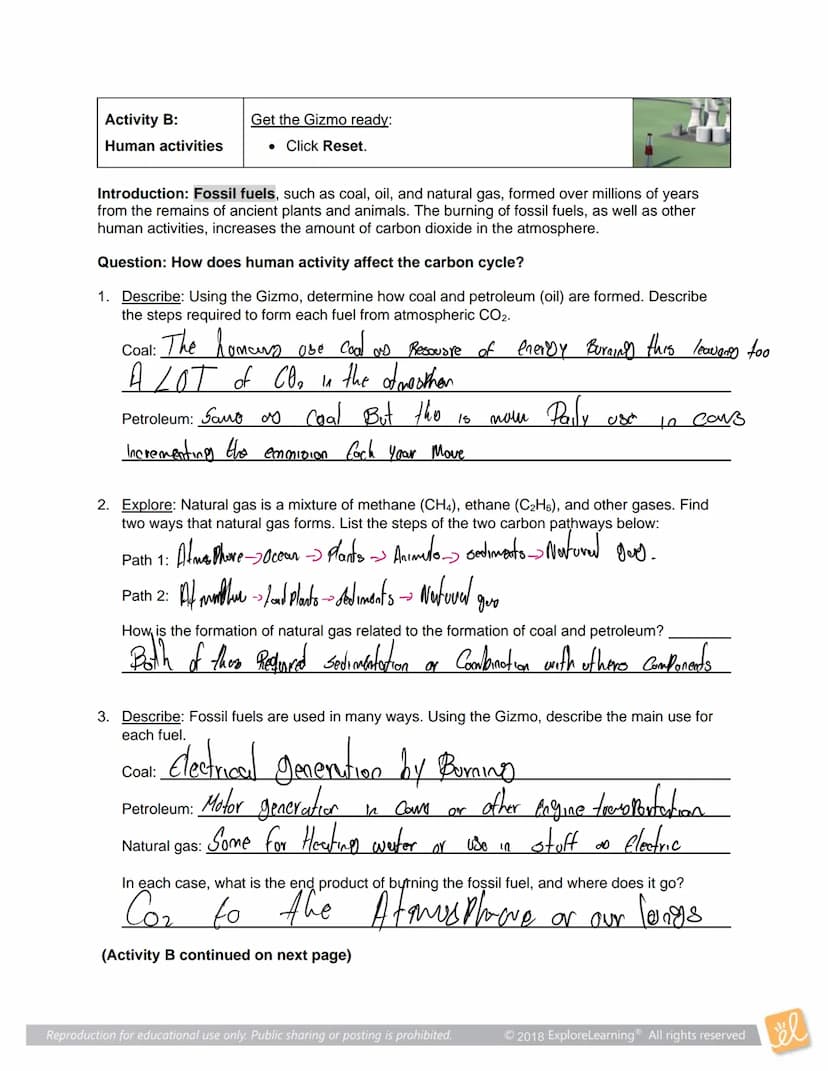 Activity B:
Human activities
Get the Gizmo ready:
• Click Reset.
Introduction: Fossil fuels, such as coal, oil, and natural gas, formed over millions of years
from the remains of ancient plants and animals. The burning of fossil fuels, as well as other
human activities, increases the amount of carbon dioxide in the atmosphere.
Question: How does human activity affect the carbon cycle?
1. Describe: Using the Gizmo, determine how coal and petroleum (oil) are formed. Describe
the steps required to form each fuel from atmospheric CO₂.
Coal: The use Coal as of energy Burning this too
A LOT of CO₂ in the
Petroleum: Same as Coal But this is more Daily use in cars
Incrementing the Each year More
2. Explore: Natural gas is a mixture of methane (CH₄), ethane (C₂H₆), and other gases. Find
two ways that natural gas forms. List the steps of the two carbon pathways below:
Path 1: → Ocean → Plants → Animals → sediments → Natural gas.
Path 2: → Land Plants → sediments → Natural gas
How is the formation of natural gas related to the formation of coal and petroleum?
Both of Required or Combination with others Components
3. Describe: Fossil fuels are used in many ways. Using the Gizmo, describe the main use for
each fuel.
Coal: Electrical generation by Burning
Petroleum: Motor generation in or other Engine
Natural gas: Some for Heating water or use in stuff as Electric
In each case, what is the end product of burning the fossil fuel, and where does it go?
CO₂ to the or our
(Activity B continued on next page)
Reproduction for educational use only. Public sharing or posting is prohibited. © 2018 ExploreLearning® All rights reserved
el